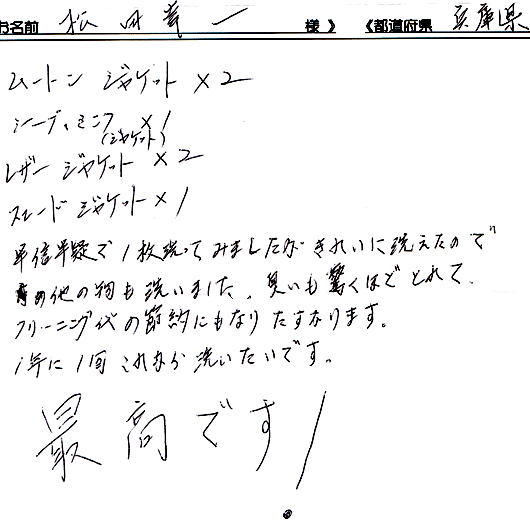 お名前 松田 幸一 様 》 《都道府県 兵庫県
ムートン ジャケット ×2
シープ、ミンク ×1
(ジャケット)
レザー ジャケット ×2
スエード ジャケット ×1
半信半疑で1枚洗ってみましたがきれいに洗えたので
他の物も洗いました。臭いも驚くほどとれて、
クリーニング代の節約にもなりたすかります。
1年に1回これから洗いたいです。
最高です!